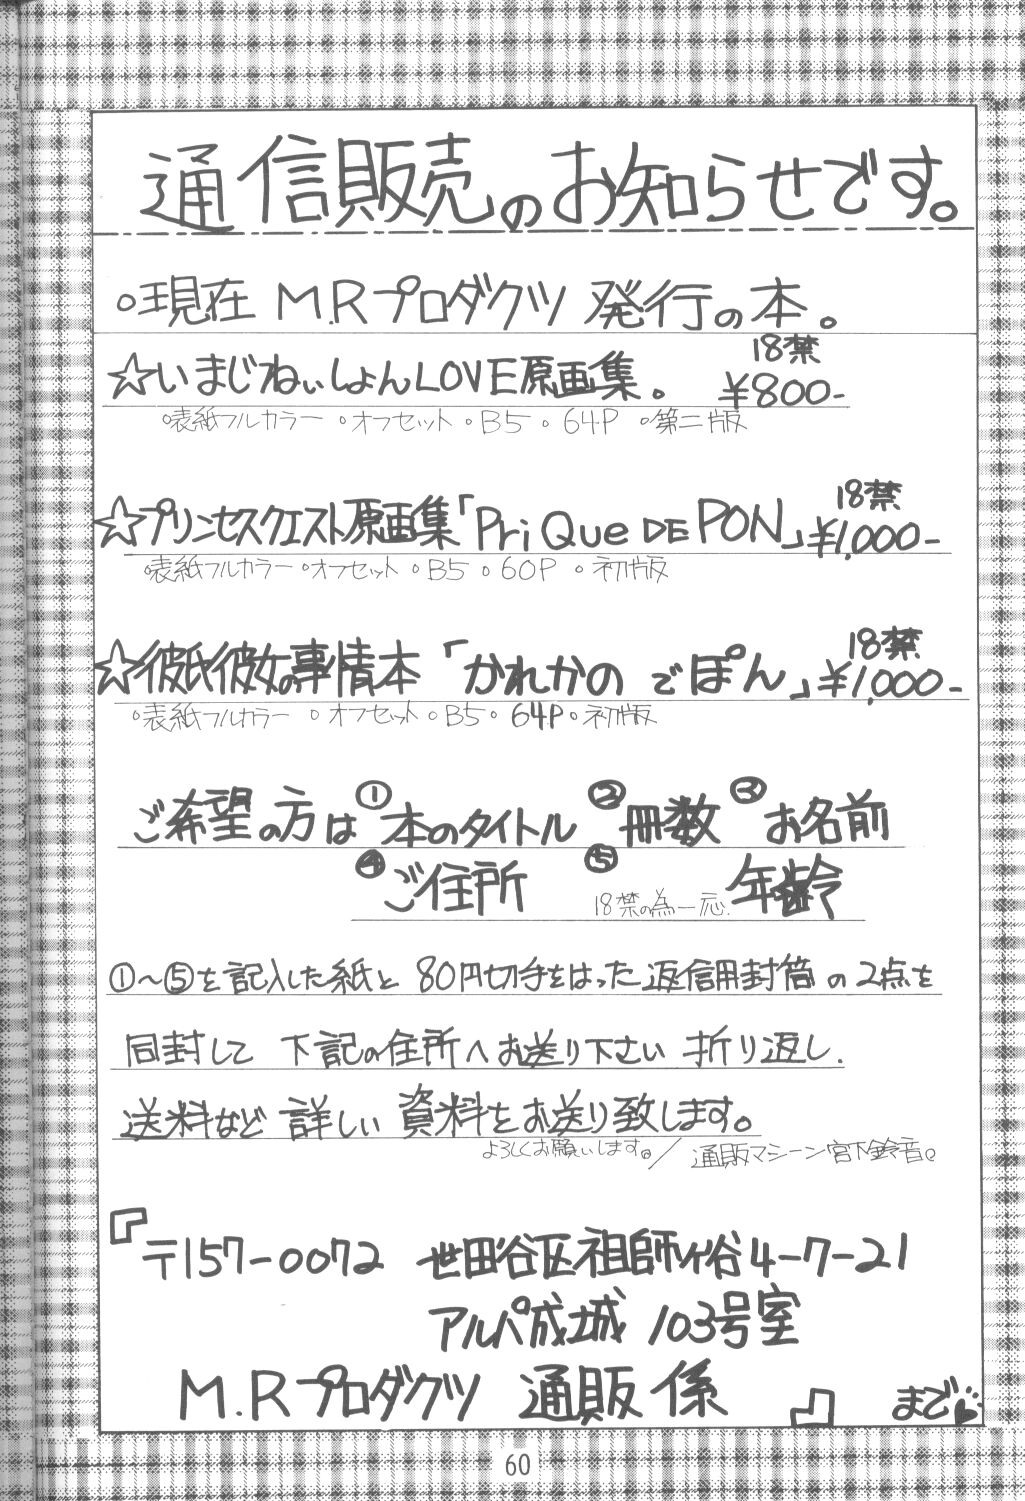 通信販売のお知らせです。
○現在 M.Rプロダクツ 発行の本。
☆いまじねぃしょんLOVE原画集。 18禁 ¥800-
○表紙フルカラー ○オフセット ○B5 ○64P ○第二版
☆プリンセスクエスト原画集「Pri Que DE PON」 18禁 ¥1,000-
○表紙フルカラー ○オフセット ○B5 ○60P ○初版
☆彼氏彼女の事情本「かれかの でぽん」 18禁 ¥1,000-
○表紙フルカラー ○オフセット ○B5 ○64P ○初版
ご希望の方は ①本のタイトル ②冊数 ③お名前
④ご住所 ⑤18禁の為一応. 年齢
①〜⑤を記入した紙と 80円切手をはった返信用封筒 の2点を
同封して 下記の住所へお送り下さい 折り返し.
送料など 詳しい 資料をお送り致します。
よろしくお願いします。／ 通販マシーン宮下鈴音。
『〒157-0072 世田谷区祖師ヶ谷4-7-21
アルパ成城 103号室
M.Rプロダクツ 通販係 』まで♥
60